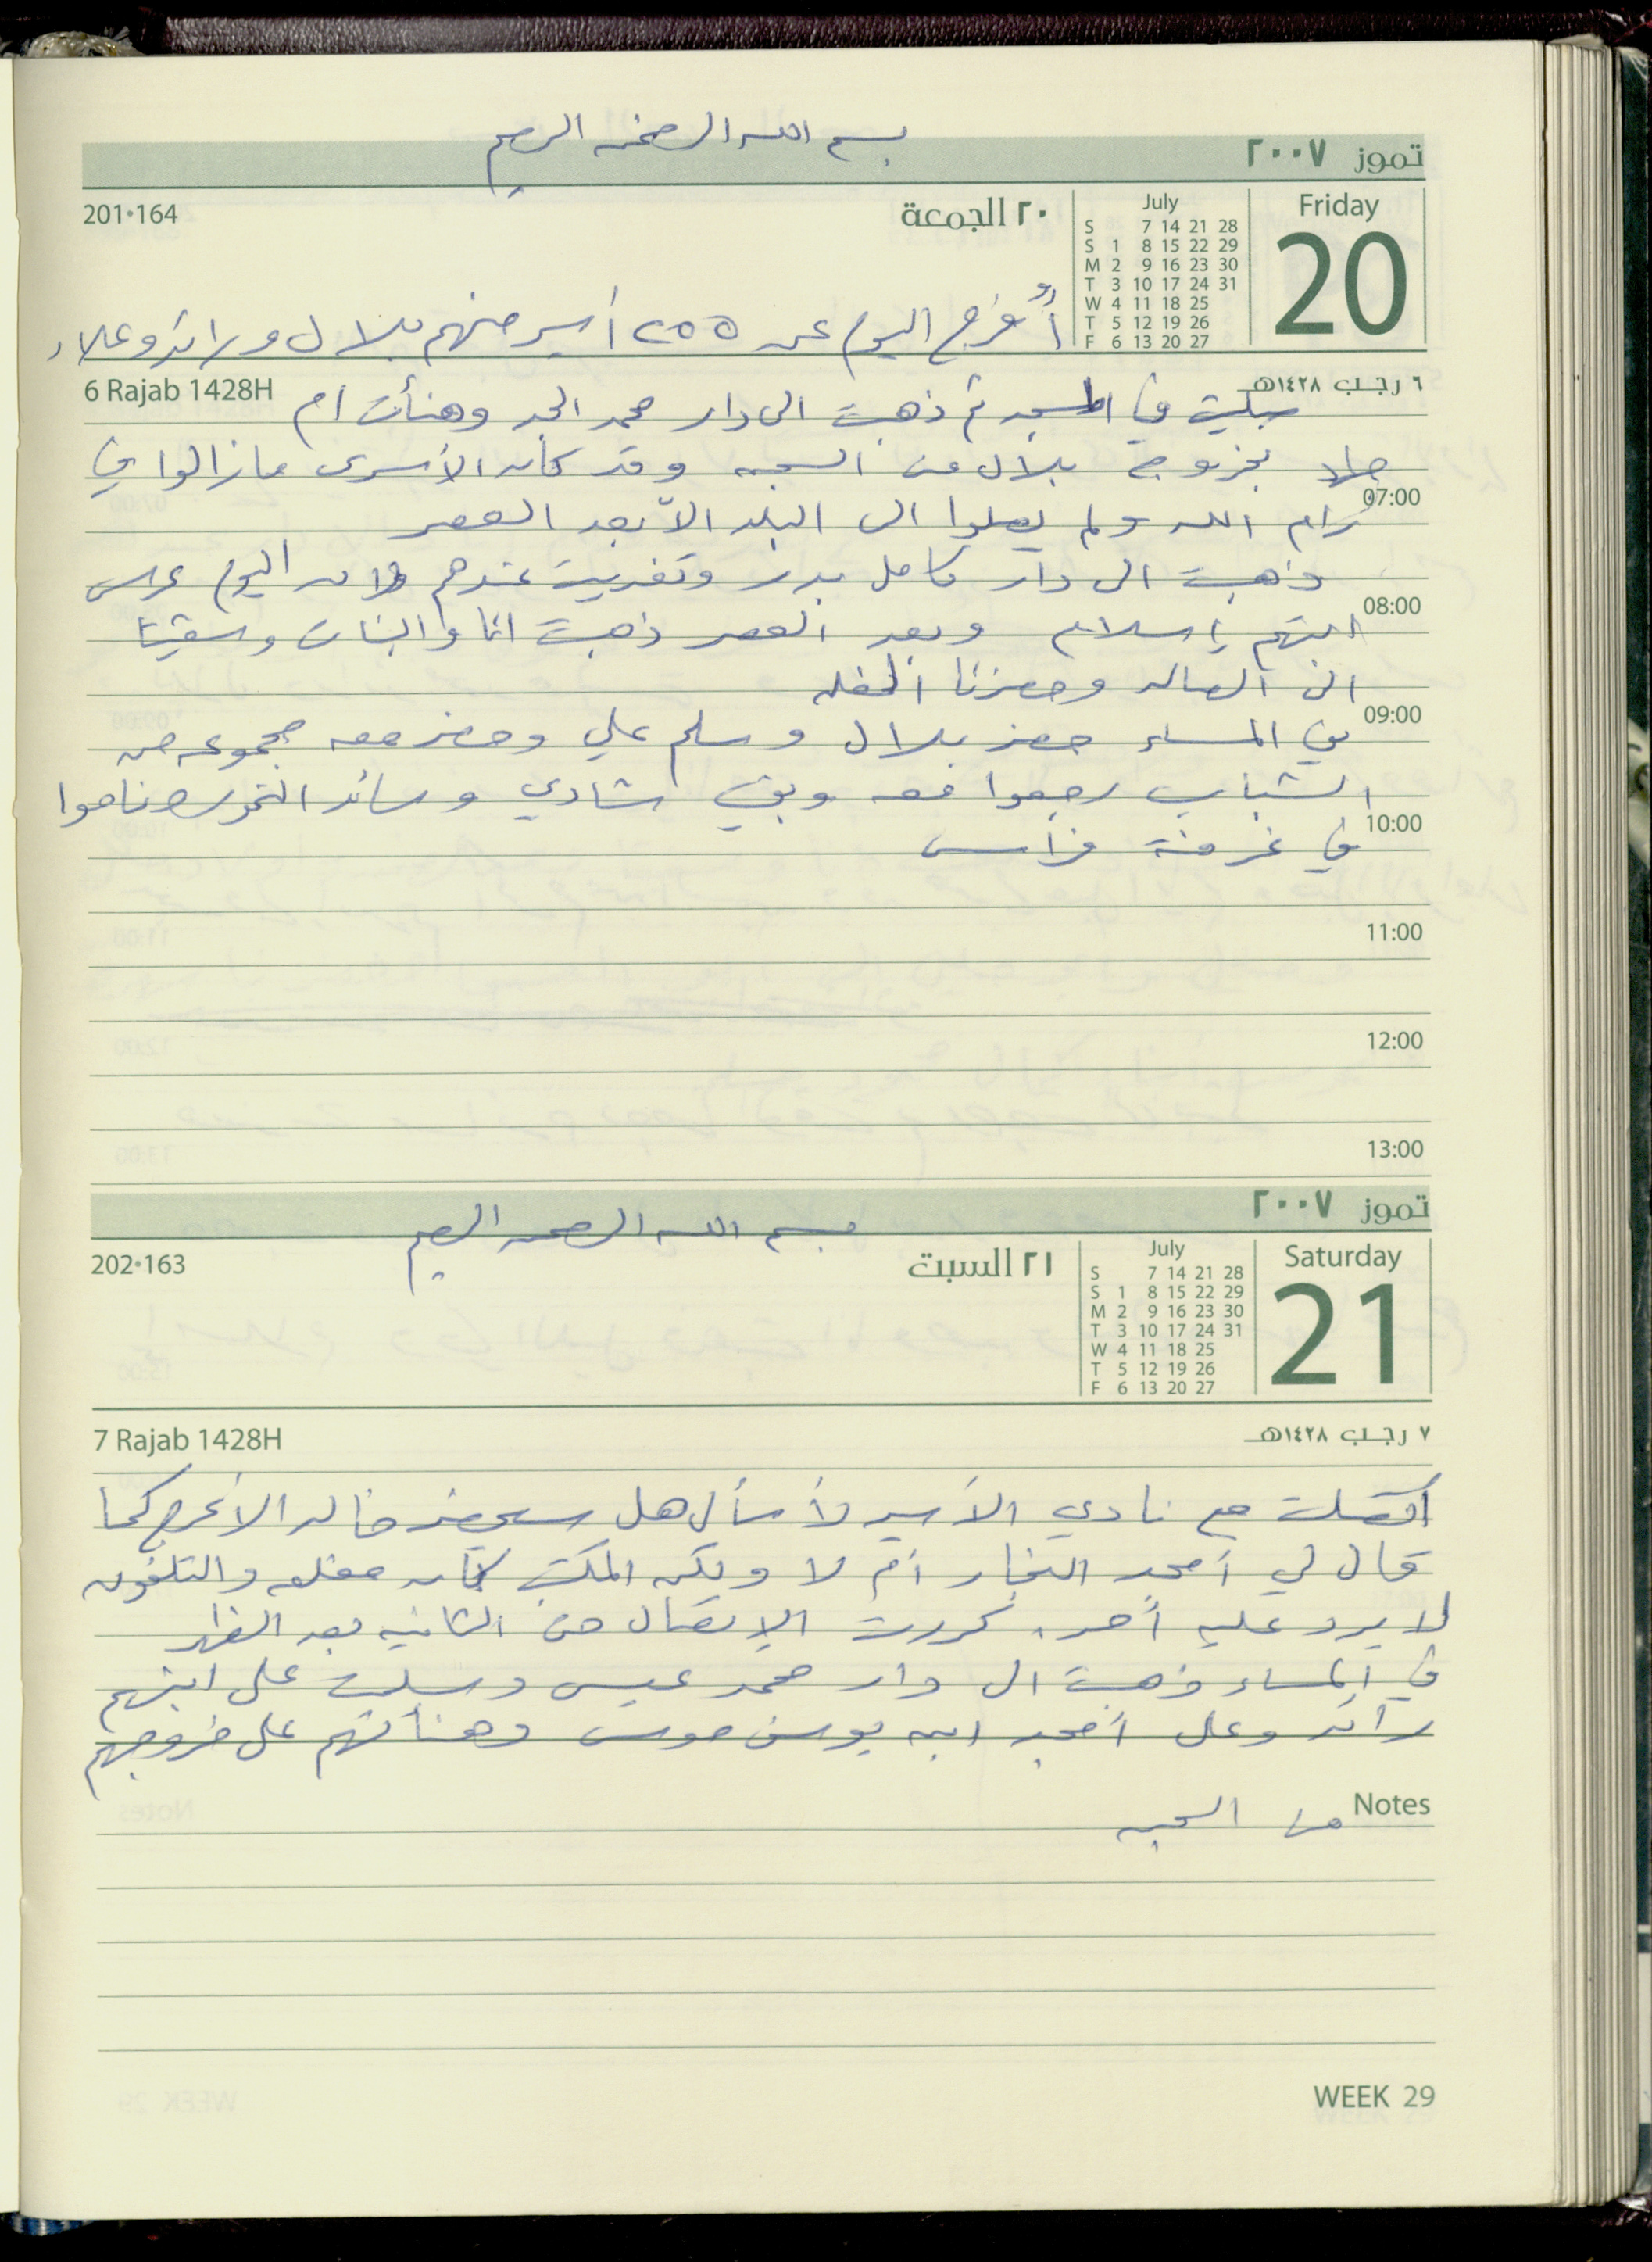 بسم الله الرحمن الرحيم
تموز ٢٠٠٧
Friday
20
July
S 7 14 21 28
S 1 8 15 22 29
M 2 9 16 23 30
T 3 10 17 24 31
W 4 11 18 25
T 5 12 19 26
F 6 13 20 27
٢٠ الجمعة
201•164
أُفرج اليوم عن ٢٥٥ أسير منهم بلال ورائد وعلاء
٦ رجب ١٤٢٨هـ
6 Rajab 1428H
صليت في المسجد ثم ذهبت الى دار محمد الجد وهنأت ام
جلاد بخروج بلال من السجن وقد كان الأسرى مازالوا في
07:00
رام الله ولم يصلوا الى البلد الا بعد العصر
ذهبت الى دار كامل بدر وتغديت عندهم لان اليوم عرس
08:00
ابنهم إسلام وبعد العصر ذهبت انا والبنات
الى الصاله وحضرنا الحفله
09:00
في المساء حضر بلال وسلم علي وحضر معه مجموعه من
الشباب رجعوا معه وبقي شادي ورائد وناموا
10:00
في غرفة فراس
11:00
12:00
13:00
تموز ٢٠٠٧
بسم الله الرحمن الرحيم
Saturday
21
July
S 7 14 21 28
S 1 8 15 22 29
M 2 9 16 23 30
T 3 10 17 24 31
W 4 11 18 25
T 5 12 19 26
F 6 13 20 27
٢١ السبت
202•163
٧ رجب ١٤٢٨هـ
7 Rajab 1428H
اتصلت مع نادي الأسير لأسأل هل سيحضر خالد الأعرج كما
قال لي أمجد النجار أم لا ولكن المكتب كان مغلق والتلفون
لا يرد عليه أحد. كررت الإتصال حتى الثانيه بعد الظهر
في المساء ذهبت الى دار محمد عيسى وسلمت على ابنهم
رائد وعلى أمجد ابن يوسف موسى وهنأتهم على خروجهم
Notes
من السجن
WEEK 29